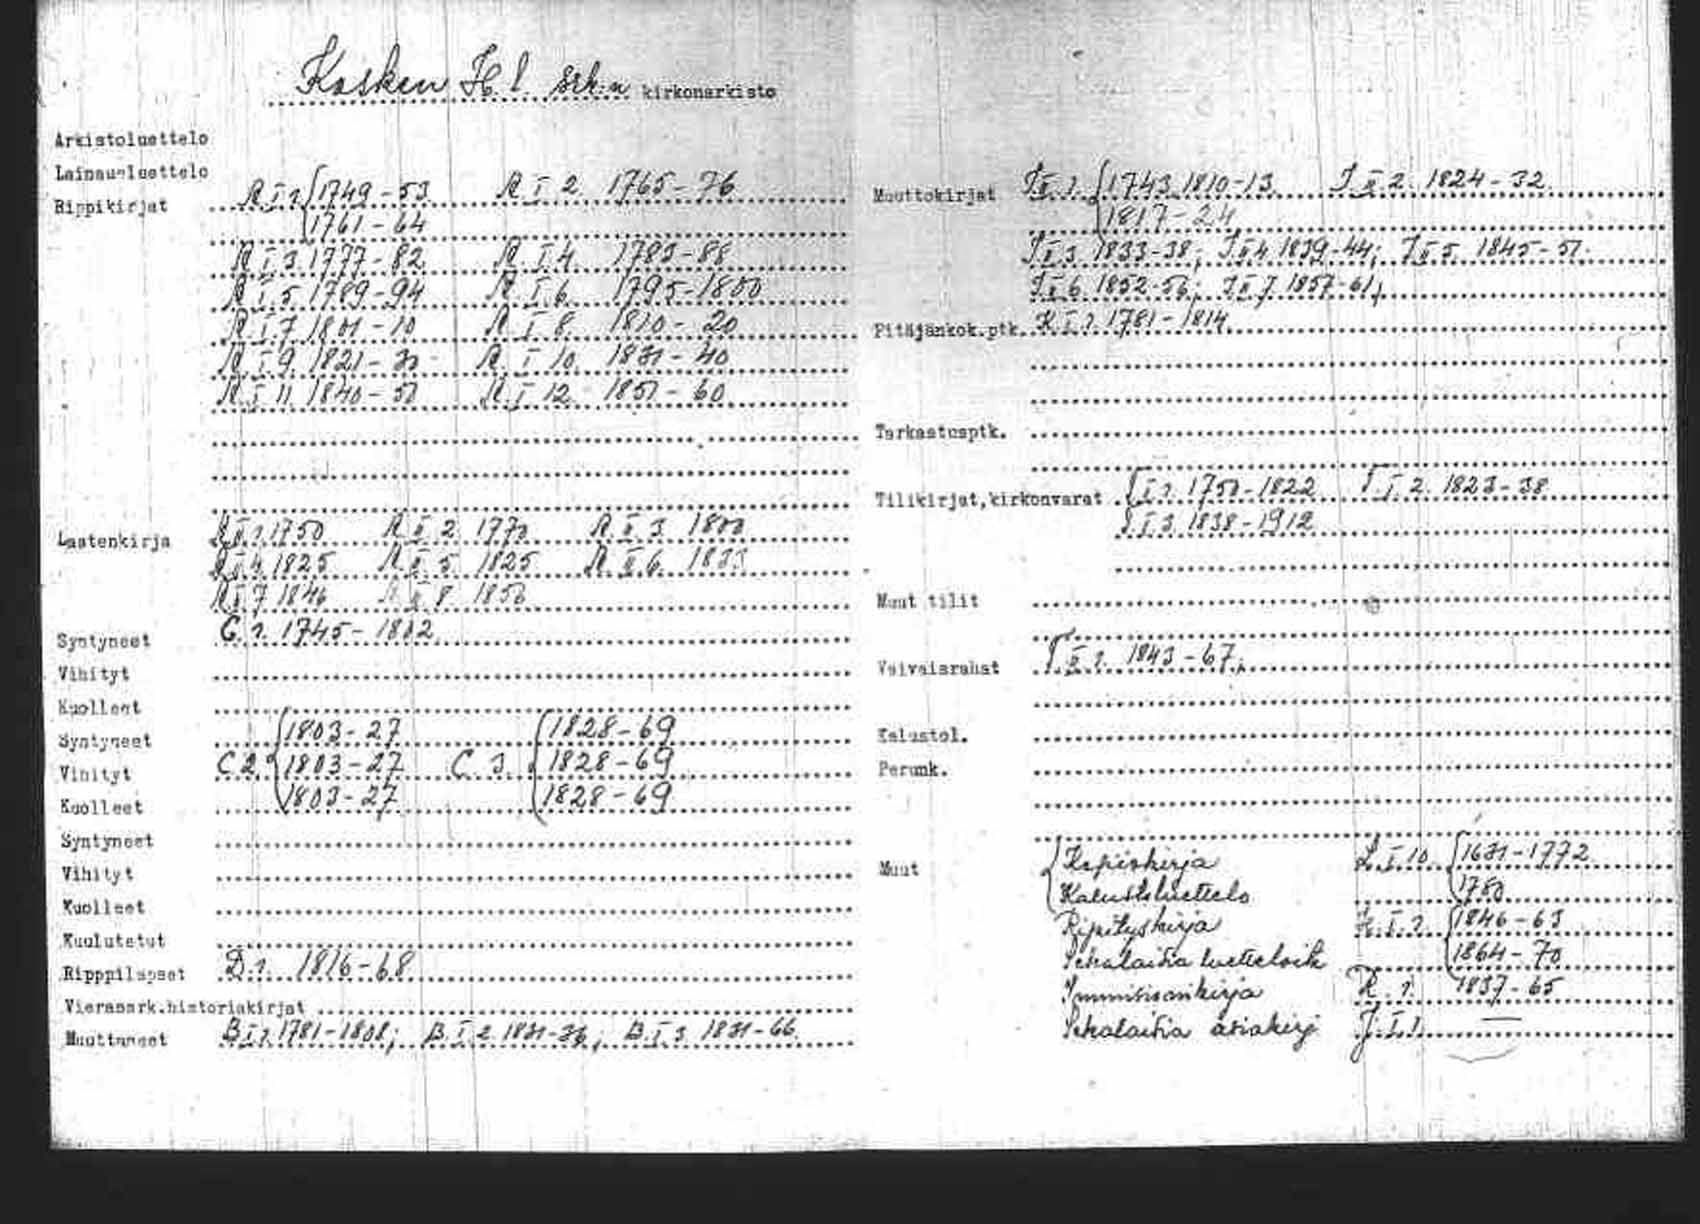 Kosken H. l. srk:n kirkonarkisto
Arkistoluettelo
Lainausluettelo
Rippikirjat R. I. 1. 1749-53 R I 2. 1765-76
1761-64
R I. 3 1777-82 R I. 4 1783-88
R I. 5 1789-94 R I. 6 1795-1800
R I. 7 1801-10 R I 8. 1810-20
R I 9. 1821-30 R I 10. 1831-40
R I 11 1840-50 R I 12 1851-60
Lastenkirja R II. 1. 1750 R II 2 1770 R II. 3 1800
R II 4 1825 R II 5 1825 R II 6
R II 7 1846 R II 8 1850
Syntyneet C. 1. 1745-1802
Vihityt
Kuolleet
Syntyneet 1803-27 1828-69
Vihityt C 2. 1803-27 C. 3. 1828-69
Kuolleet 1803-27 1828-69
Syntyneet
Vihityt
Kuolleet
Kuulutetut
Ripppilapset D. 1. 1816-68
Vierasark.historiakirjat
Muuttaneet B I 1 1781-1808; B I 2 1831-36; B. I 3 1831-66.
Muuttokirjat I II. 1. 1743, 1810-13 I II 2. 1824-32
1817-24
I II 3 1833-38; I II 4 1839-44; I II 5 1845-51.
I II 6 1852-56; I II 7 1857-61;
Pitäjänkok.ptk. K I. 1. 1781-1814
Tarkastusptk.
Tilikirjat,kirkonvarat T I. 1. 1750-1822 T I 2. 1823-38
T I 3. 1838-1912
Muut tilit
Vaivaisrahat T II 1. 1843-67.
Kalustol.
Perunk.
Muut Kopiokirja L. I. 10. 1631-1772
Kalustoluettelo 1780
Ripityskirja 1846-63
Sekalaisia luetteloita 1864-70
Immissionikirja H. 1. 1837-65
Sekalaisia asiakirj J. I. 1. —